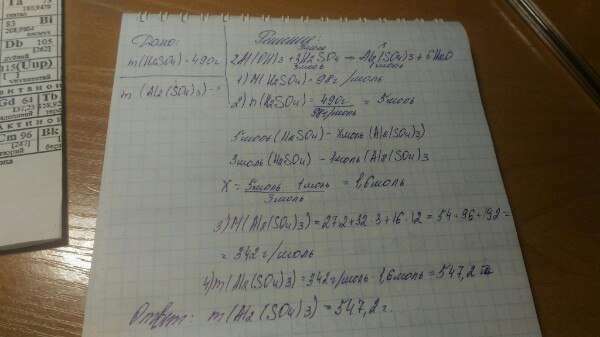 Та 73
180,9479
83 Bi
208,9804
висмут
Db 105
[262]
дубний
115(Uup)
АКТИНОИ
Gd 64 Tb
АКТИНОИ
Cm 96 Bk
[247]
кюрий
Дано:
m(H2SO4)=490г
m (Al2(SO4)3)-?
Решение
5моль xмоль
2Al(OH)3 + 3H2SO4 → Al2(SO4)3 + 6H2O
3моль 1моль
1) M(H2SO4) = 98г/моль
2) n(H2SO4) = 490г / 98г/моль = 5моль
5моль (H2SO4) - xмоль (Al2(SO4)3)
3моль (H2SO4) - 1моль (Al2(SO4)3
X = 5моль · 1моль / 3моль = 1,6моль
3) M(Al2(SO4)3) = 27·2+32·3+16·12 = 54+96+192 =
= 342 г/моль
4) m(Al2(SO4)3) = 342г/моль · 1,6моль = 547,2
Ответ: m(Al2(SO4)3) = 547,2 г.